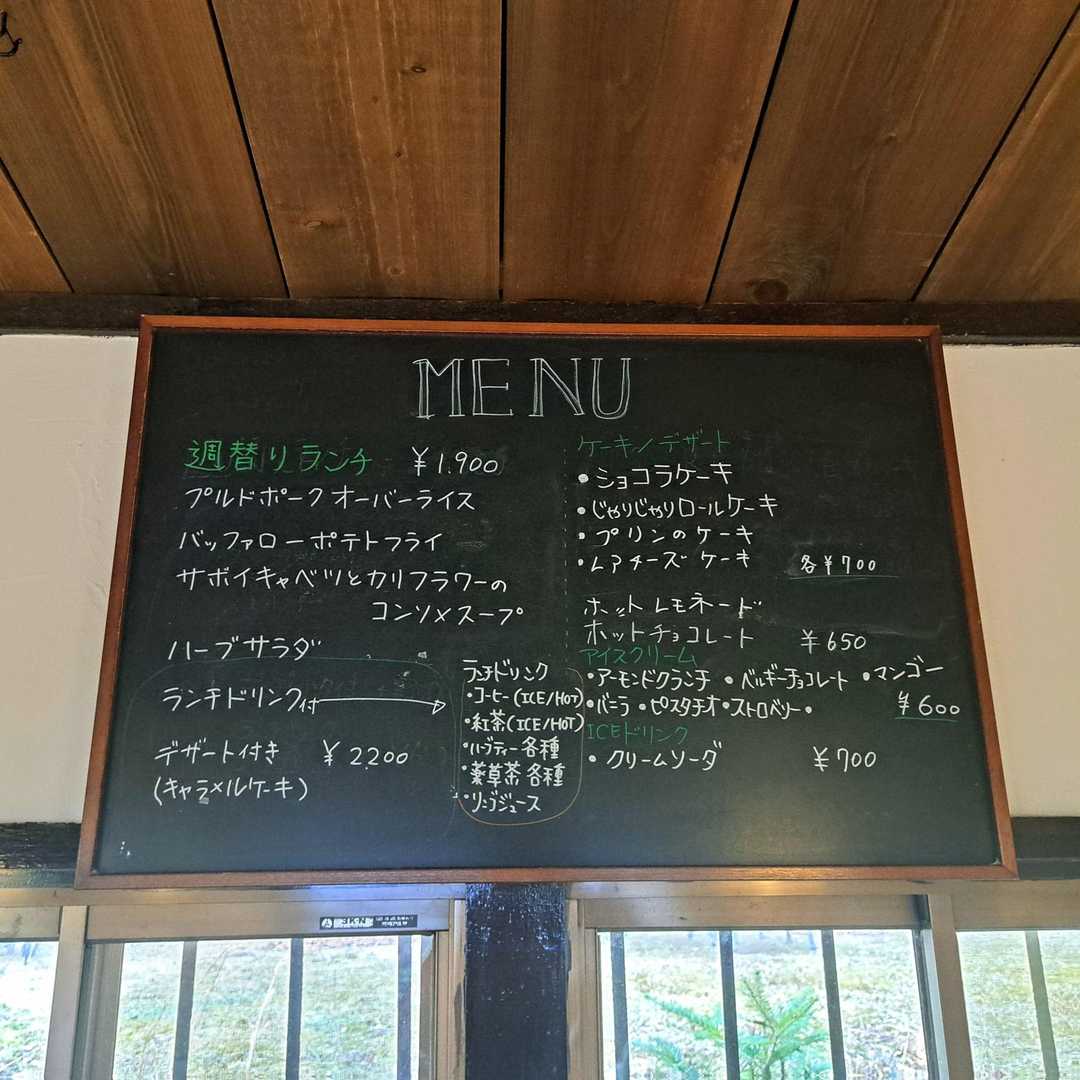 MENU
週替りランチ ¥1,900
プルドポークオーバーライス
バッファローポテトフライ
サボイキャベツとカリフラワーの
コンソメスープ
ハーブサラダ
ランチドリンク付
デザート付き ¥2200
(キャラメルケーキ)
ランチドリンク
・コーヒー(ICE/HOT)
・紅茶(ICE/HOT)
・ハーブティー各種
・薬草茶 各種
・リンゴジュース
ケーキ/デザート
・ショコラケーキ
・じゃりじゃりロールケーキ
・プリンのケーキ
・レアチーズケーキ 各¥700
ホットレモネード
ホットチョコレート ¥650
アイスクリーム
・アーモンドクランチ ・ベルギーチョコレート ・マンゴー
・バニラ ・ピスタチオ ・ストロベリー・ ¥600
ICEドリンク
・クリームソーダ ¥700